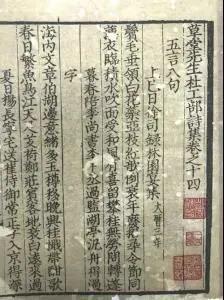 草堂先生杜工部詩集卷之十四
五言八句
上巳日徐司錄林園宴集 大曆三年
鬢毛垂領白花蘂亞枝紅欹倒衰年廢招尋令節同
薄衣臨積水吹面受和風有喜留攀桂無勞問轉蓬
暮春陪李尚書李中丞過鄭監湖亭汎舟得過
字
海內文章伯湖邊意緒多玉樽移晚興桂楫帶酣歌
春日繁魚鳥江天足芰荷鄭莊賓客地衰白遠來過
夏日揚長寧宅送崔侍御常正字入京得深